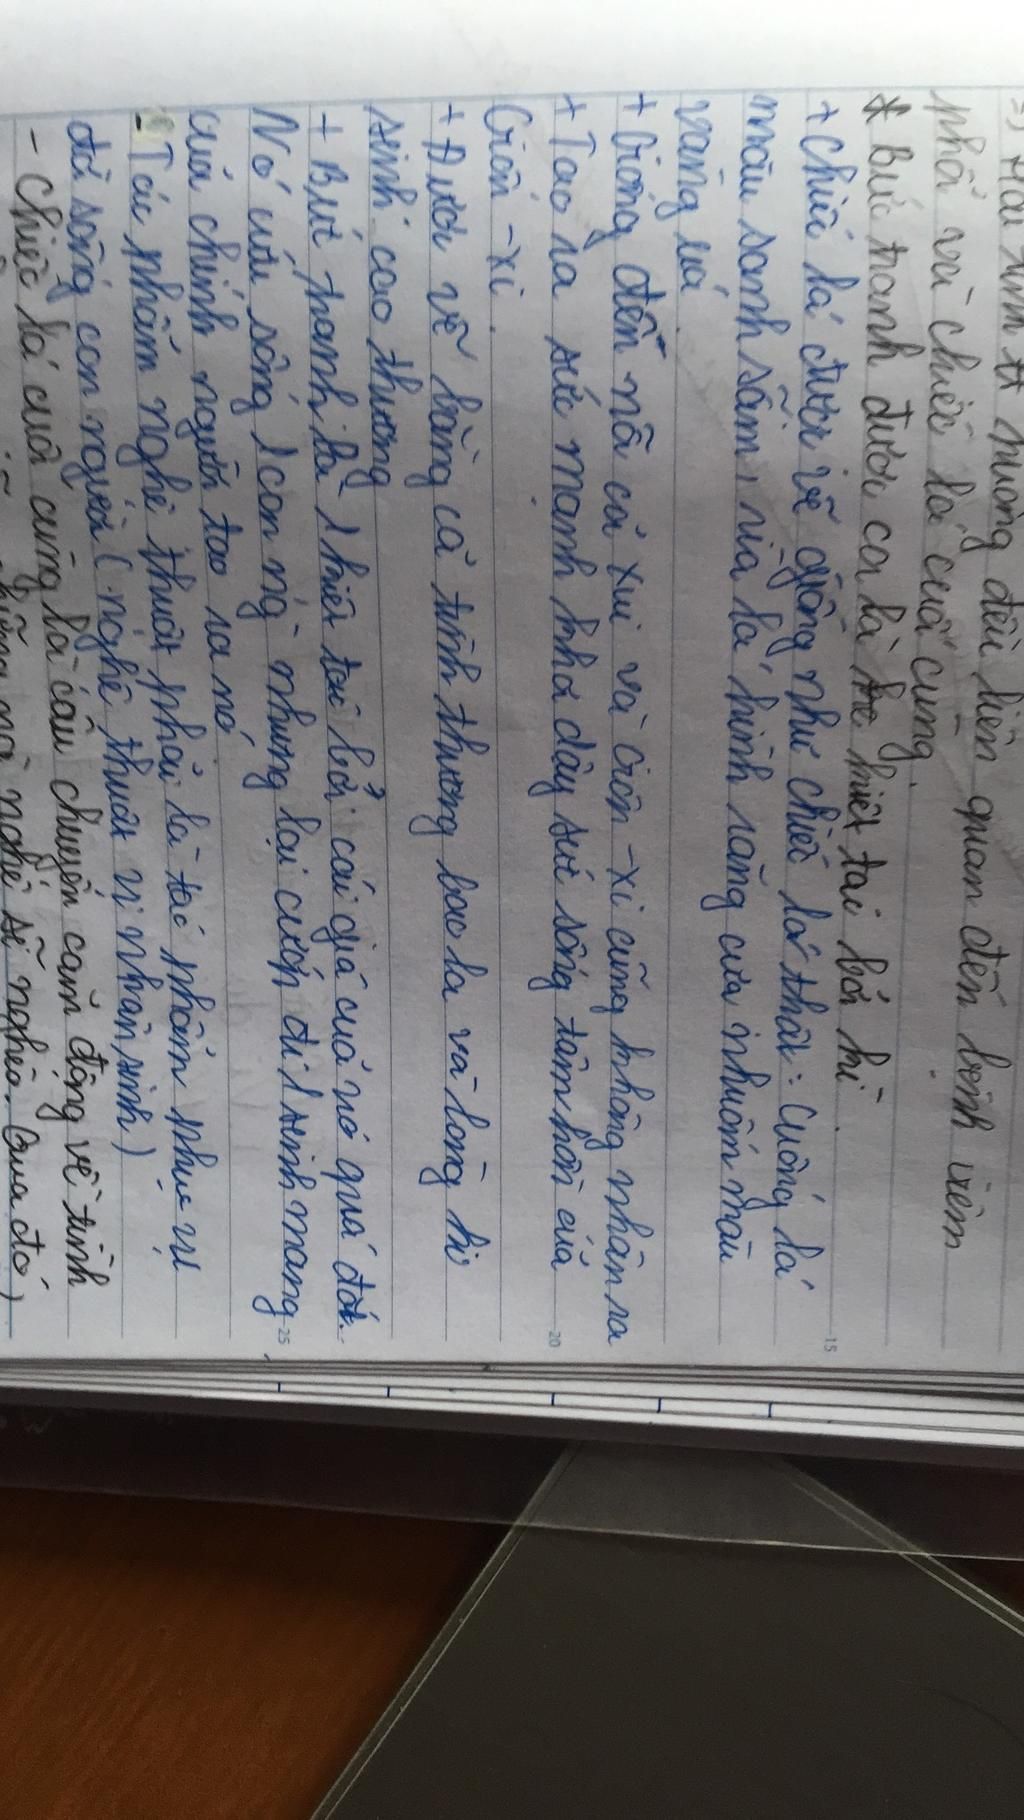 => Hai tình # huống đều liên quan đến bệnh viêm
phổi và chiếc lá cuối cùng.
* Bức tranh được coi là kiệt tác bởi vì
+ Chiếc lá được vẽ giống như chiếc lá thật: Cuống lá
màu xanh sẫm, rìa lá hình răng cưa nhuốm màu
vàng úa
+ Giống đến nỗi cả Xiu và Giôn-xi cũng không nhận ra
+ Tạo ra sức mạnh khơi dậy sức sống tâm hồn của
Giôn-xi
+ Được vẽ bằng cả tình thương bao la và lòng hi
sinh cao thượng
+ Bức tranh là 1 kiệt tác bởi cái giá của nó quá đắt.
Nó cứu sống 1 con ng~ nhưng lại cướp đi 1 sinh mạng
của chính người tạo ra nó
Tác phẩm nghệ thuật phải là tác phẩm phục vụ
đời sống con người (nghệ thuật vị nhân sinh)
- Chiếc lá cuối cùng là câu chuyện cảm động về tình
những nghệ sĩ nghèo. Qua đó,